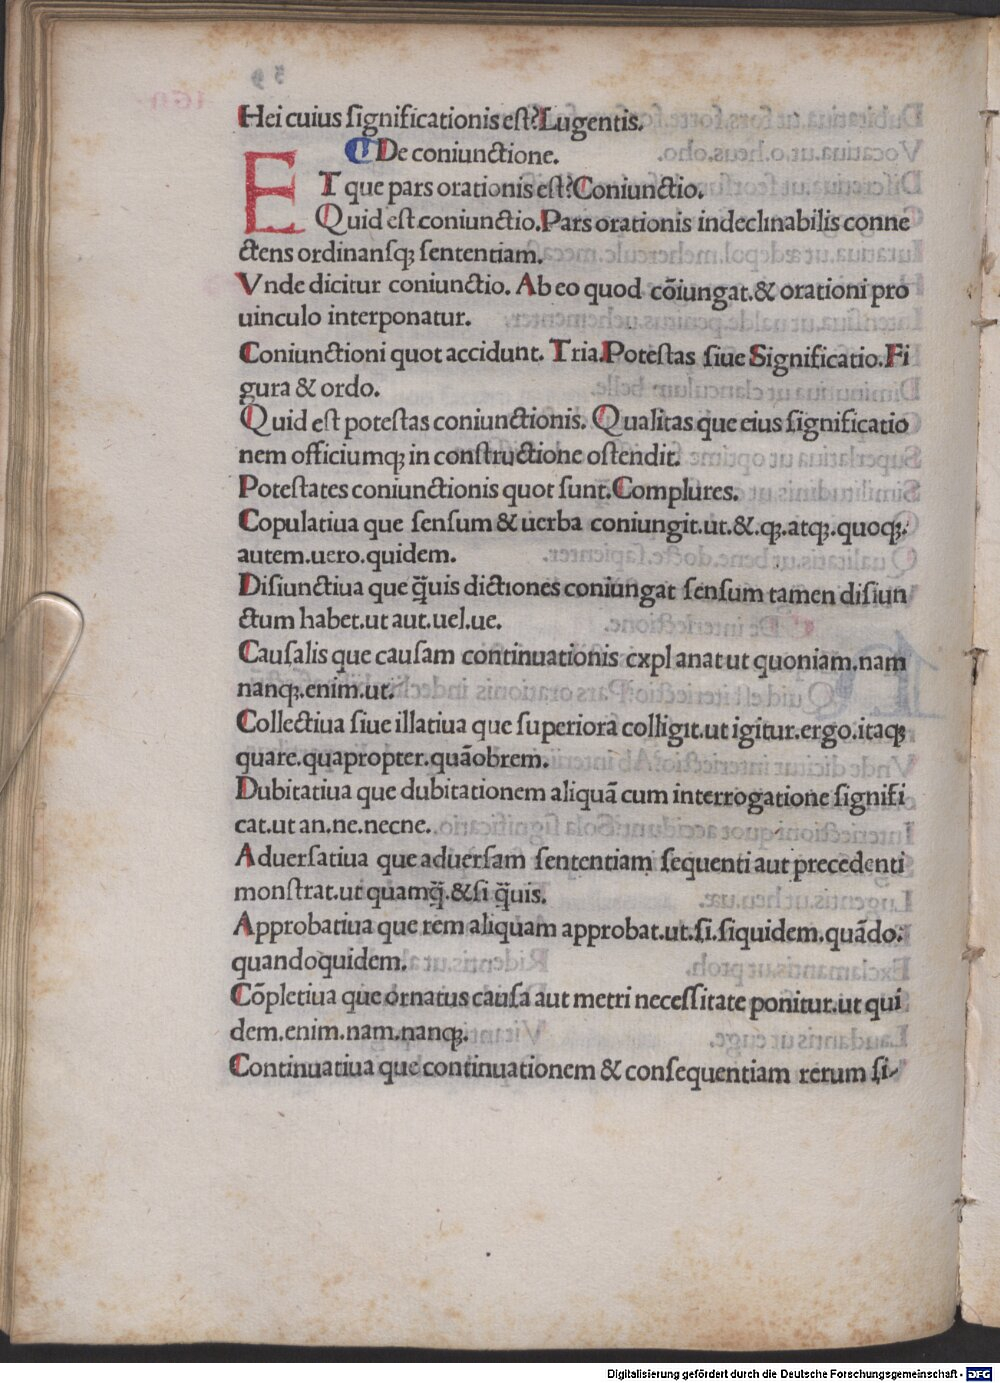 Hei cuius ſignificationis eſt?Lugentis.
De coniunctione.
ET que pars orationis eſt?Coniunctio.
Quid eſt coniunctio.Pars orationis indeclinabilis conne
ctens ordinanſqꝫ ſententiam.
Vnde dicitur coniunctio. Ab eo quod cõiungat.& orationi pro
uinculo interponatur.
Coniunctioni quot accidunt. Tria.Poteſtas ſiue Significatio.Fi
gura & ordo.
Quid eſt poteſtas coniunctionis. Qualitas que eius ſignificatio
nem officiumqꝫ in conſtructione oſtendit.
Poteſtates coniunctionis quot ſunt.Complures.
Copulatiua que ſenſum & uerba coniungit.ut.&.qꝫ.atqꝫ.quoqꝫ.
autem.uero.quidem.
Diſiunctiua que q̃uis dictiones coniungat ſenſum tamen diſiun
ctum habet.ut aut.uel.ue.
Cauſalis que cauſam continuationis expl anat ut quoniam.nam
nanqꝫ.enim.ut.
Collectiua ſiue illatiua que ſuperiora colligit.ut igitur.ergo.itaqꝫ
quare.quapropter.quãobrem.
Dubitatiua que dubitationem aliquã cum interrogatione ſignifi
cat.ut an.ne.necne.
Aduerſatiua que aduerſam ſententiam ſequenti aut precedenti
monſtrat.ut quamq̃.&ſi q̃uis.
Approbatiua que rem aliquam approbat.ut.ſi.ſiquidem.quãdo.
quandoquidem.
Cõpletiua que ornatus cauſa aut metri neceſſitate ponitur.ut qui
dem.enim.nam.nanqꝫ.
Continuatiua que continuationem & conſequentiam rerum ſi-
Digitalisierung gefördert durch die Deutsche Forschungsgemeinschaft - DFG